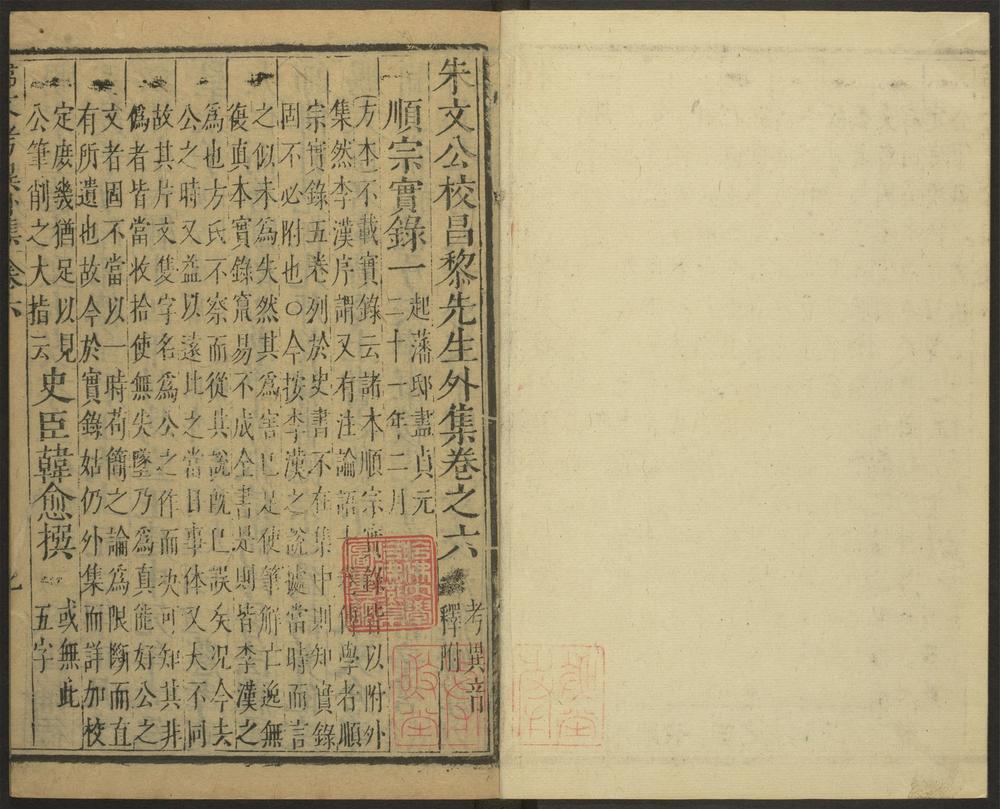 朱文公校昌黎先生外集卷之六 考異音
釋附
順宗實錄一 起藩邸盡貞元
二十一年二月
方本不載實錄云諸本順宗實錄皆以附外
集然李漢序謂又有注論語十卷傳學者順
宗實錄五卷列於史書不在集中則知實錄
固不必附也○今按李漢之說處當時而言
之似未為失然其為害已足使筆解亡逸無
復真本實錄竄易不成全書是則皆李漢之
為也方氏不察而從其說旣已誤矣况今去
公之時又益以遠比之當日事体又大不同
故其片文隻字名為公之作而决可知其非
偽者皆當收拾使無失墜乃為真能好公之
文者固不當以一時苟簡之論為限斷而直
有所遺也故今於實錄姑仍外集而詳加校
定庶幾猶足以見
公筆削之大指云
史臣韓愈撰 或無此
五字